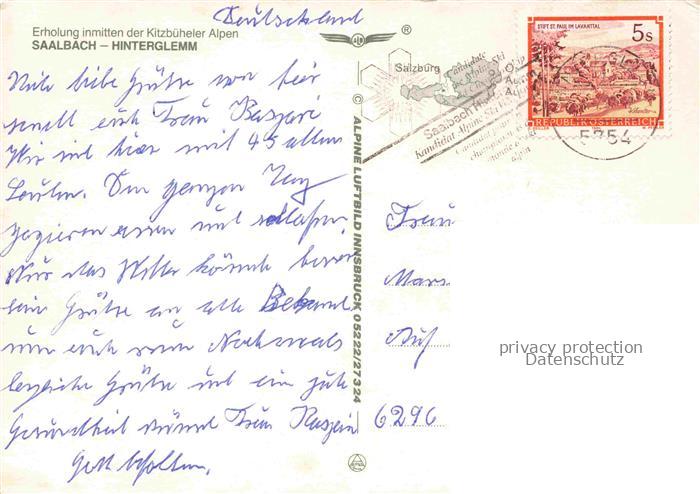 Deutschland
Erholung inmitten der Kitzbüheler Alpen
SAALBACH – HINTERGLEMM
®
Viele liebe Grüße von hier
sendet euch Frau Kaspari
Wir sind hier mit 45 alten
Leuten. Den ganzen Tag
spazieren essen und schlafen.
Nur das Wetter könnte besser
sein Grüße an alle Bekannte
nun euch noch Nochmals
herzliche Grüße und ein gute
Gesundheit wünscht Frau Kaspari
Gott befohlen.
© ALPINE LUFTBILD INNSBRUCK 05222/27324
Salzburg
Saalbach
Kandidat Alpine Ski
STIFT ST. PAUL IM LAVANTTAL
5s
REPUBLIK ÖSTERREICH
5754
Frau
Mar
Auf
6296
privacy protection
Datenschutz